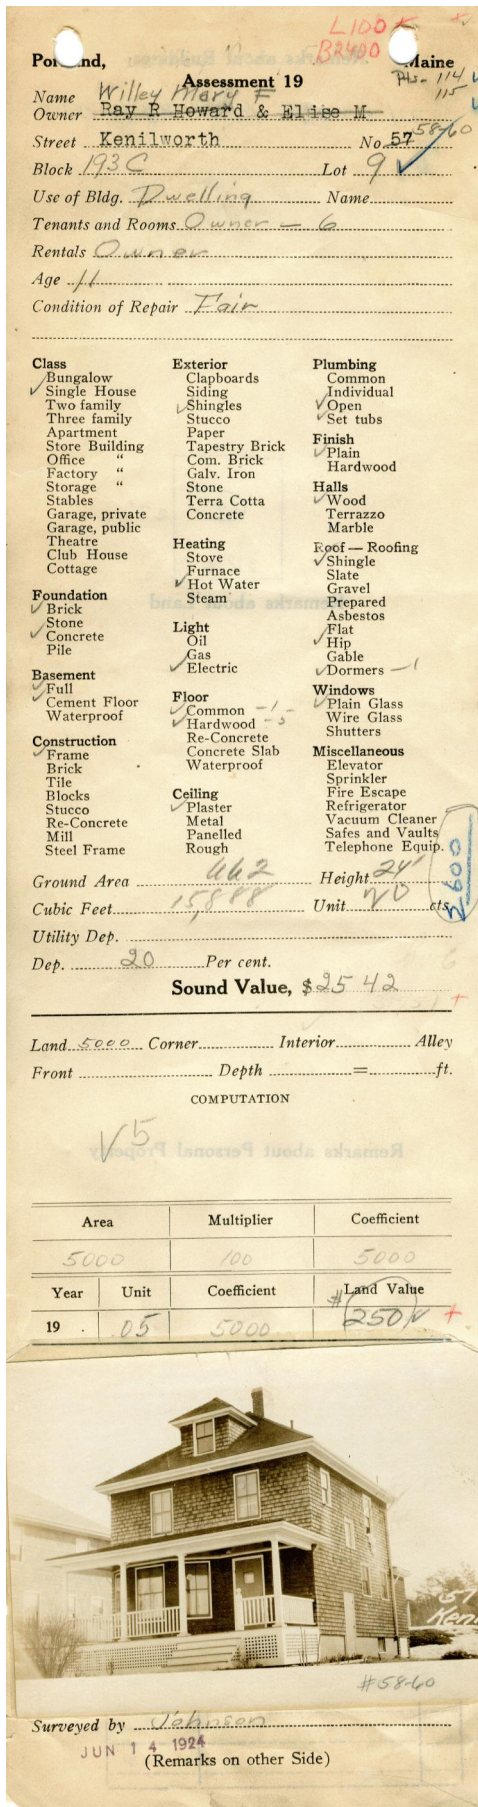 L100 +
B2400
Portland, Maine
Assessment 19
Pts- 114
115
Name Willey Mary E
Owner Ray R Howard & Elise M
Street Kenilworth No. 57 58-60
Block 193 C Lot 9
Use of Bldg. Dwelling Name
Tenants and Rooms Owner - 6
Rentals Owner
Age 11
Condition of Repair Fair
Class
Bungalow
Single House
Two family
Three family
Apartment
Store Building
Office "
Factory "
Storage "
Stables
Garage, private
Garage, public
Theatre
Club House
Cottage
Foundation
Brick
Stone
Concrete
Pile
Basement
Full
Cement Floor
Waterproof
Construction
Frame
Brick
Tile
Blocks
Stucco
Re-Concrete
Mill
Steel Frame
Exterior
Clapboards
Siding
Shingles
Stucco
Paper
Tapestry Brick
Com. Brick
Galv. Iron
Stone
Terra Cotta
Concrete
Heating
Stove
Furnace
Hot Water
Steam
Light
Oil
Gas
Electric
Floor
Common - 1
Hardwood - 5
Re-Concrete
Concrete Slab
Waterproof
Ceiling
Plaster
Metal
Panelled
Rough
Plumbing
Common
Individual
Open
Set tubs
Finish
Plain
Hardwood
Halls
Wood
Terrazzo
Marble
Roof — Roofing
Shingle
Slate
Gravel
Prepared
Asbestos
Flat
Hip
Gable
Dormers - 1
Windows
Plain Glass
Wire Glass
Shutters
Miscellaneous
Elevator
Sprinkler
Fire Escape
Refrigerator
Vacuum Cleaner
Safes and Vaults
Telephone Equip.
2600
Ground Area 662 Height 24'
Cubic Feet 15,888 Unit 20 cts.
Utility Dep.
Dep. 20 Per cent.
Sound Value, $2542
Land 5000 Corner Interior Alley
Front Depth = ft.
COMPUTATION
V5
Area Multiplier Coefficient
5000 100 5000
Year Unit Coefficient Land Value
19 .05 5000 #250 +
57
Ken
#58-60
Surveyed by Johnson
JUN 14 1924
(Remarks on other Side)